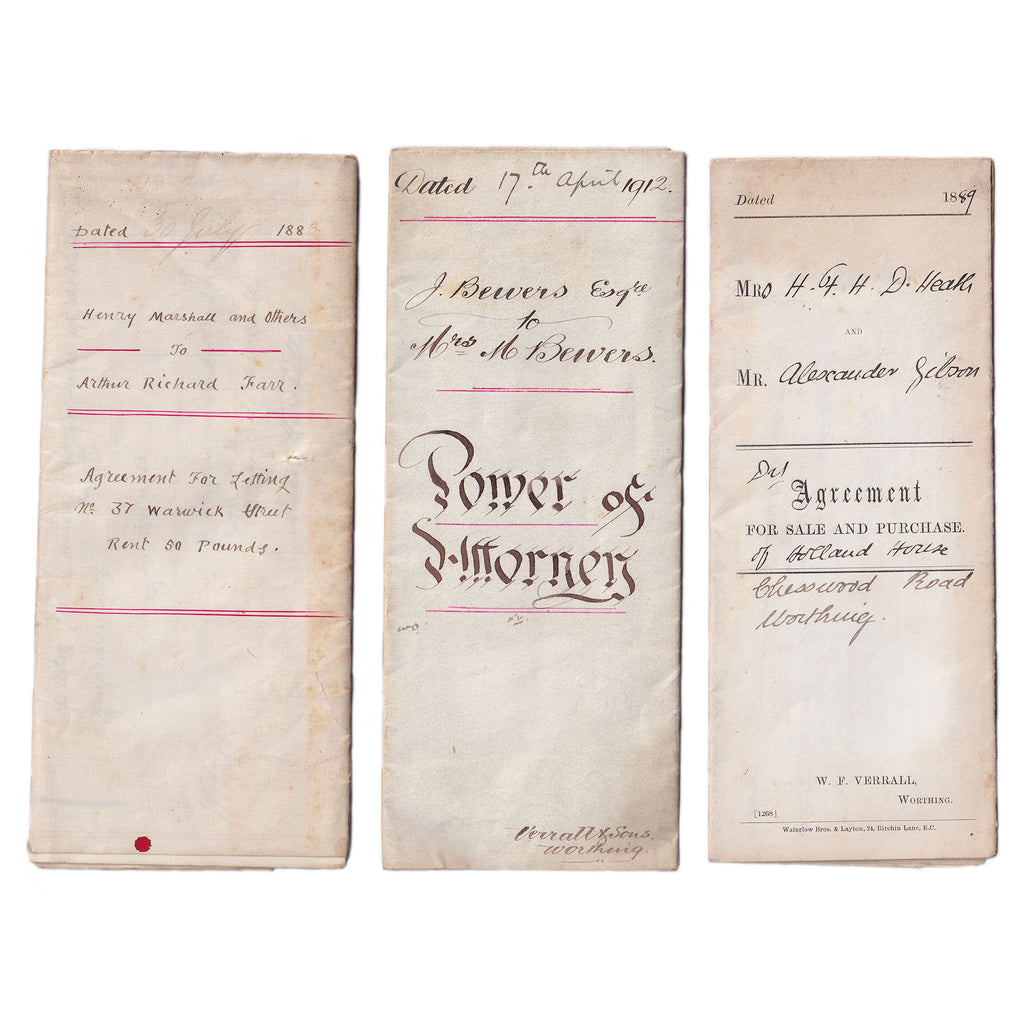 Dated 30 July 1883
Henry Marshall and Others
To
Arthur Richard Farr.
Agreement For Letting
No. 37 Warwick Street
Rent 50 Pounds.
Dated 17.th April 1912.
J. Bewers Esqre
to
Mrs M Bewers.
Power of
Attorney
wo.
Verrall & Sons
Worthing.
Dated 1889
Mrs H. H. D. Heath
AND
Mr. Alexander Gibson
Dft
Agreement
FOR SALE AND PURCHASE.
of Holland House
Chesswood Road
Worthing.
W. F. VERRALL,
WORTHING.
[1268]
Waterlow Bros. & Layton, 24, Birchin Lane, E.C.